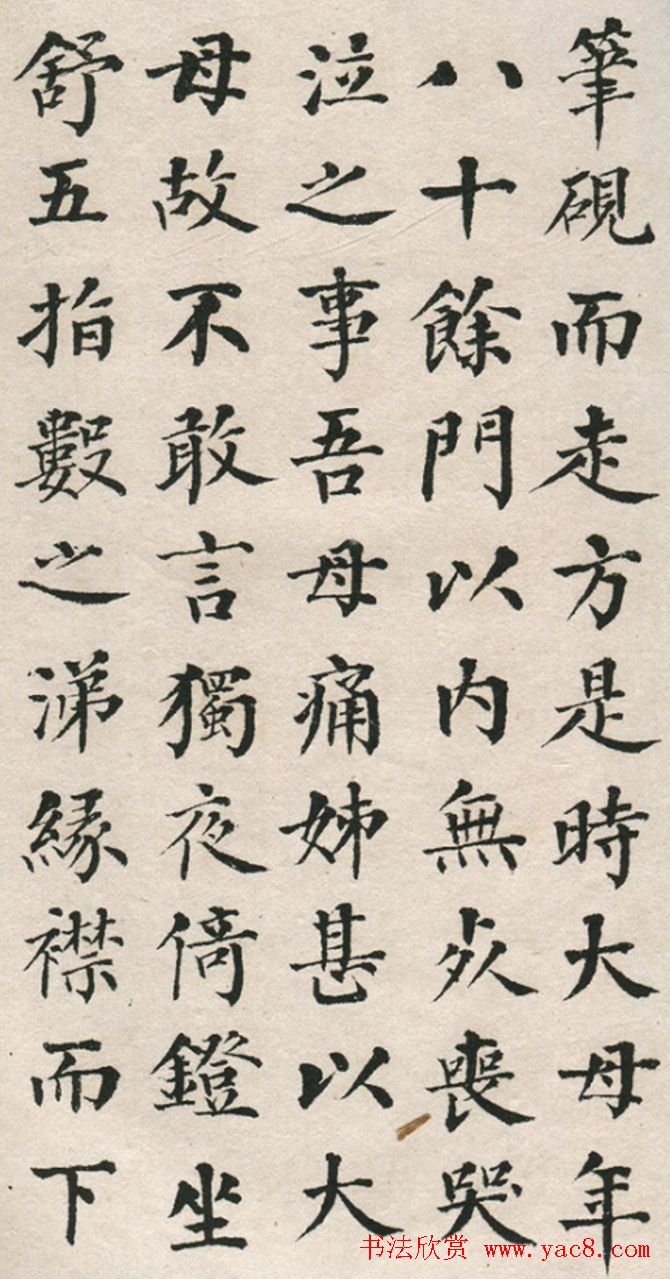 筆硯而走方是時大母年
八十餘門以内無死喪哭
泣之事吾母痛姊甚以大
母故不敢言獨夜倚鐙坐
舒五指數之涕緣襟而下
书法欣赏 www.yac8.com